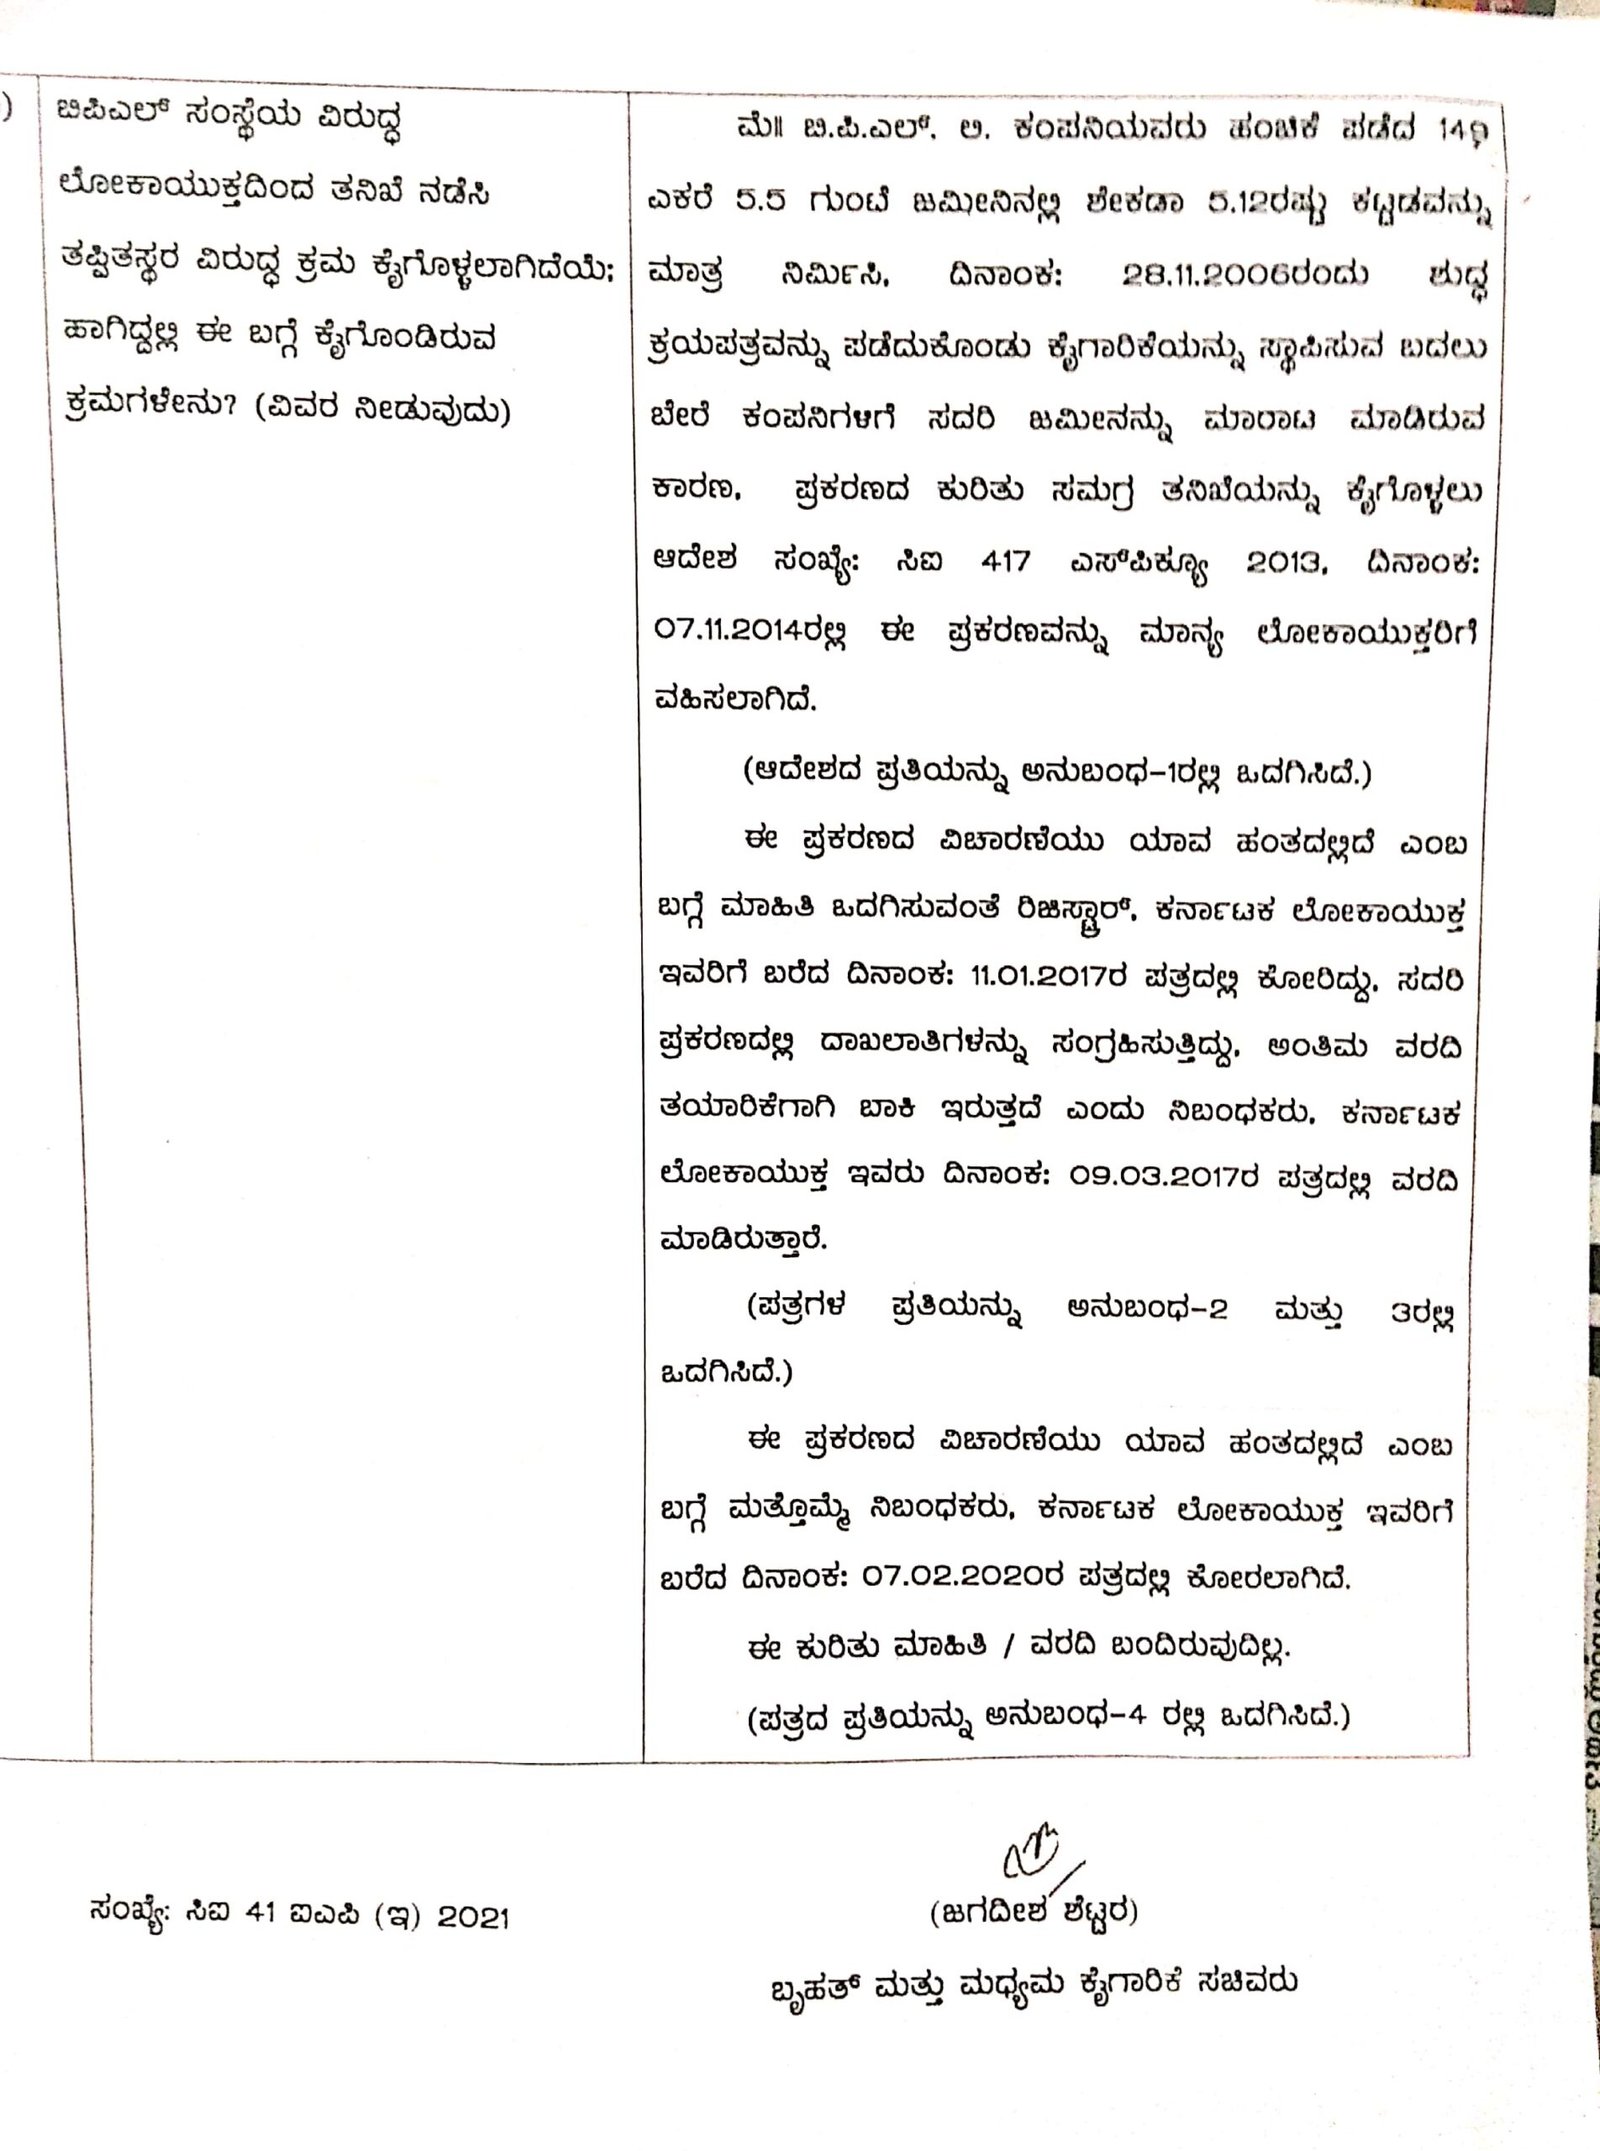 )
ಬಿಪಿಎಲ್ ಸಂಸ್ಥೆಯ ವಿರುದ್ಧ
ಲೋಕಾಯುಕ್ತದಿಂದ ತನಿಖೆ ನಡೆಸಿ
ತಪ್ಪಿತಸ್ಥರ ವಿರುದ್ಧ ಕ್ರಮ ಕೈಗೊಳ್ಳಲಾಗಿದೆಯೆ;
ಹಾಗಿದ್ದಲ್ಲಿ ಈ ಬಗ್ಗೆ ಕೈಗೊಂಡಿರುವ
ಕ್ರಮಗಳೇನು? (ವಿವರ ನೀಡುವುದು)
ಮೆ॥ ಬಿ.ಪಿ.ಎಲ್. ಲಿ. ಕಂಪನಿಯವರು ಹಂಚಿಕೆ ಪಡೆದ 149
ಎಕರೆ 5.5 ಗುಂಟೆ ಜಮೀನಿನಲ್ಲಿ ಶೇಕಡಾ 5.12ರಷ್ಟು ಕಟ್ಟಡವನ್ನು
ಮಾತ್ರ ನಿರ್ಮಿಸಿ, ದಿನಾಂಕ: 28.11.2006ರಂದು ಶುದ್ಧ
ಕ್ರಯಪತ್ರವನ್ನು ಪಡೆದುಕೊಂಡು ಕೈಗಾರಿಕೆಯನ್ನು ಸ್ಥಾಪಿಸುವ ಬದಲು
ಬೇರೆ ಕಂಪನಿಗಳಿಗೆ ಸದರಿ ಜಮೀನನ್ನು ಮಾರಾಟ ಮಾಡಿರುವ
ಕಾರಣ, ಪ್ರಕರಣದ ಕುರಿತು ಸಮಗ್ರ ತನಿಖೆಯನ್ನು ಕೈಗೊಳ್ಳಲು
ಆದೇಶ ಸಂಖ್ಯೆ: ಸಿಐ 417 ಎಸ್‌ಪಿಕ್ಯೂ 2013, ದಿನಾಂಕ:
07.11.2014ರಲ್ಲಿ ಈ ಪ್ರಕರಣವನ್ನು ಮಾನ್ಯ ಲೋಕಾಯುಕ್ತರಿಗೆ
ವಹಿಸಲಾಗಿದೆ.
(ಆದೇಶದ ಪ್ರತಿಯನ್ನು ಅನುಬಂಧ-1ರಲ್ಲಿ ಒದಗಿಸಿದೆ.)
ಈ ಪ್ರಕರಣದ ವಿಚಾರಣೆಯು ಯಾವ ಹಂತದಲ್ಲಿದೆ ಎಂಬ
ಬಗ್ಗೆ ಮಾಹಿತಿ ಒದಗಿಸುವಂತೆ ರಿಜಿಸ್ಟ್ರಾರ್, ಕರ್ನಾಟಕ ಲೋಕಾಯುಕ್ತ
ಇವರಿಗೆ ಬರೆದ ದಿನಾಂಕ: 11.01.2017ರ ಪತ್ರದಲ್ಲಿ ಕೋರಿದ್ದು, ಸದರಿ
ಪ್ರಕರಣದಲ್ಲಿ ದಾಖಲಾತಿಗಳನ್ನು ಸಂಗ್ರಹಿಸುತ್ತಿದ್ದು, ಅಂತಿಮ ವರದಿ
ತಯಾರಿಕೆಗಾಗಿ ಬಾಕಿ ಇರುತ್ತದೆ ಎಂದು ನಿಬಂಧಕರು, ಕರ್ನಾಟಕ
ಲೋಕಾಯುಕ್ತ ಇವರು ದಿನಾಂಕ: 09.03.2017ರ ಪತ್ರದಲ್ಲಿ ವರದಿ
ಮಾಡಿರುತ್ತಾರೆ.
(ಪತ್ರಗಳ ಪ್ರತಿಯನ್ನು ಅನುಬಂಧ-2 ಮತ್ತು 3ರಲ್ಲಿ
ಒದಗಿಸಿದೆ.)
ಈ ಪ್ರಕರಣದ ವಿಚಾರಣೆಯು ಯಾವ ಹಂತದಲ್ಲಿದೆ ಎಂಬ
ಬಗ್ಗೆ ಮತ್ತೊಮ್ಮೆ ನಿಬಂಧಕರು, ಕರ್ನಾಟಕ ಲೋಕಾಯುಕ್ತ ಇವರಿಗೆ
ಬರೆದ ದಿನಾಂಕ: 07.02.2020ರ ಪತ್ರದಲ್ಲಿ ಕೋರಲಾಗಿದೆ.
ಈ ಕುರಿತು ಮಾಹಿತಿ / ವರದಿ ಬಂದಿರುವುದಿಲ್ಲ.
(ಪತ್ರದ ಪ್ರತಿಯನ್ನು ಅನುಬಂಧ-4 ರಲ್ಲಿ ಒದಗಿಸಿದೆ.)
ಸಂಖ್ಯೆ: ಸಿಐ 41 ಐಎಪಿ (ಇ) 2021
(ಜಗದೀಶ ಶೆಟ್ಟರ)
ಬೃಹತ್ ಮತ್ತು ಮಧ್ಯಮ ಕೈಗಾರಿಕೆ ಸಚಿವರು